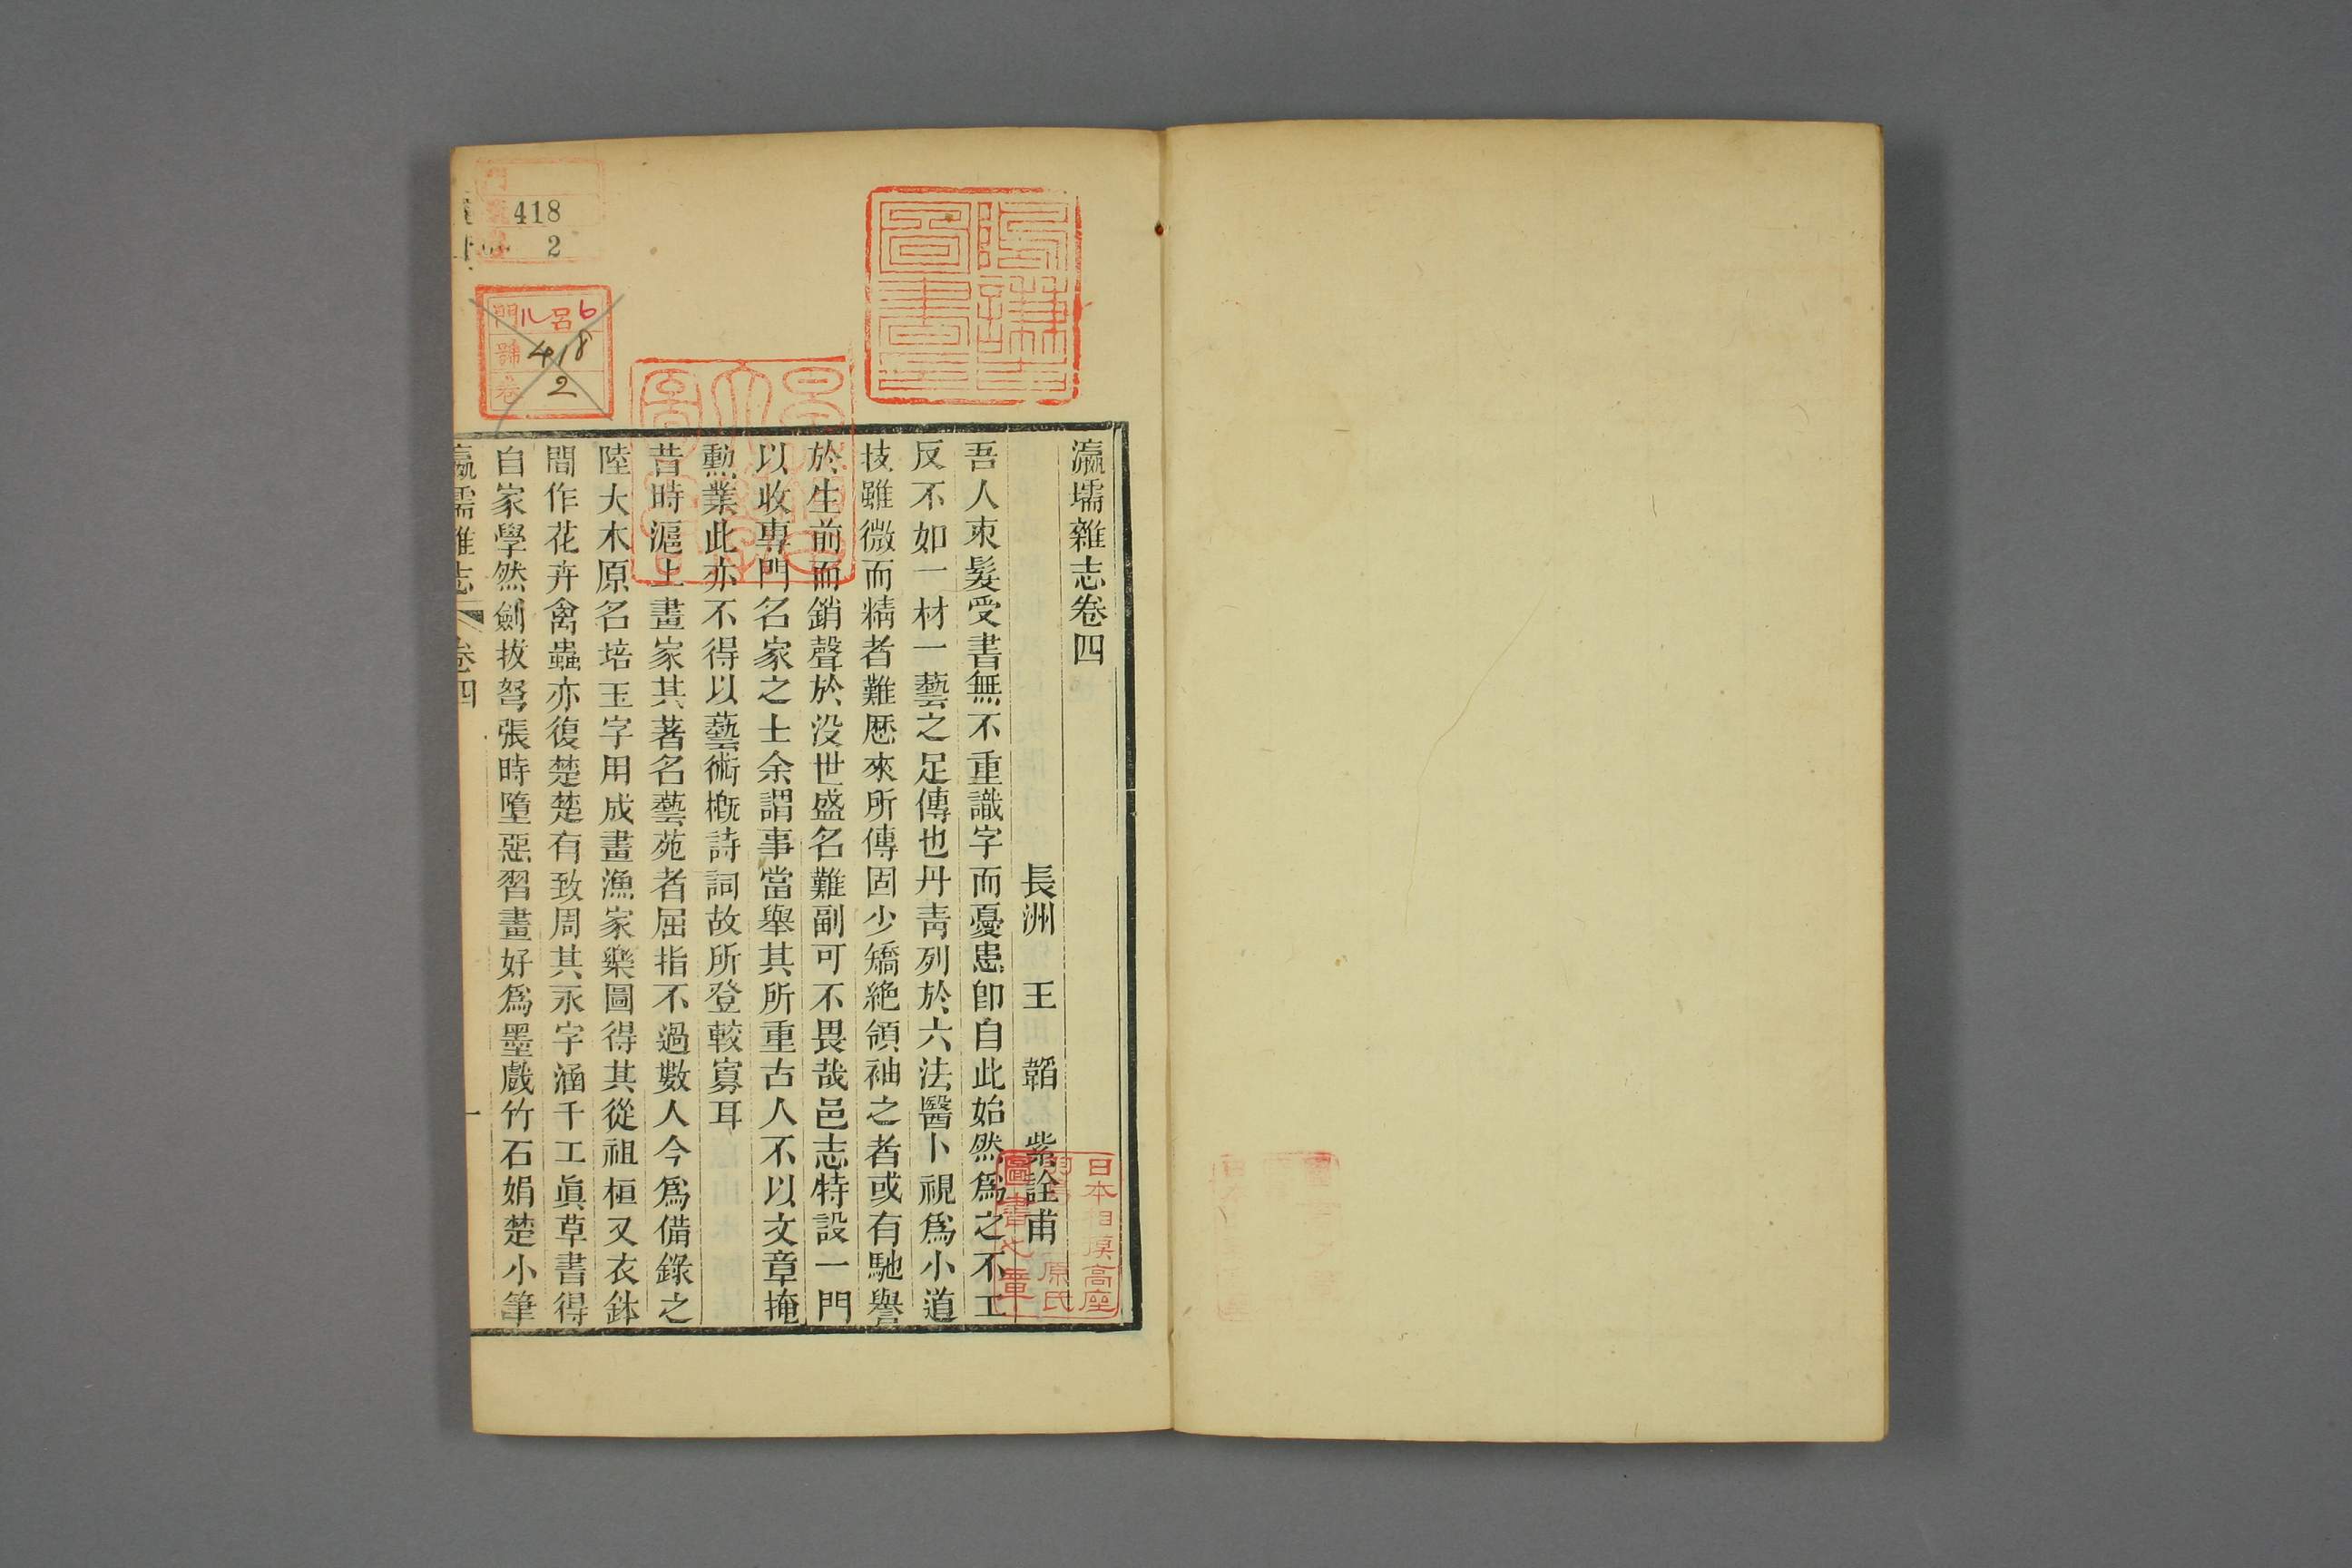 瀛壖雜志卷四
長洲 王 韜 紫詮甫
吾人束髮受書無不重識字而憂患卽自此始然爲之不工
反不如一材一藝之足傳也丹靑列於六法醫卜視爲小道
技雖微而精者難厯來所傳固少矯絶領袖之者或有馳譽
於生前而銷聲於没世盛名難副可不畏哉邑志特設一門
以收專門名家之士余謂事當舉其所重古人不以文章掩
勳業此亦不得以藝術槪詩詞故所登較寡耳
昔時滬上畫家其著名藝苑者屈指不過數人今爲備錄之
陸大木原名培玉字用成畫漁家樂圖得其從祖桓又衣鉢
間作花卉禽蟲亦復楚楚有致周其永字涵千工眞草書得
自家學然劍拔弩張時墮惡習畫好爲墨戲竹石娟楚小筆
瀛壖雜志 卷四 一
418
2
門 ル 呂 6
號 418
卷 2
日本相模高座
原氏
圖書之章